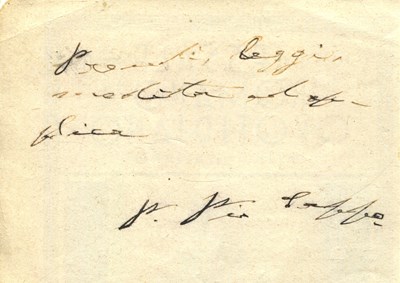 Prendi, leggi,
medita ed ap-
plica
P. Pio Capp.o